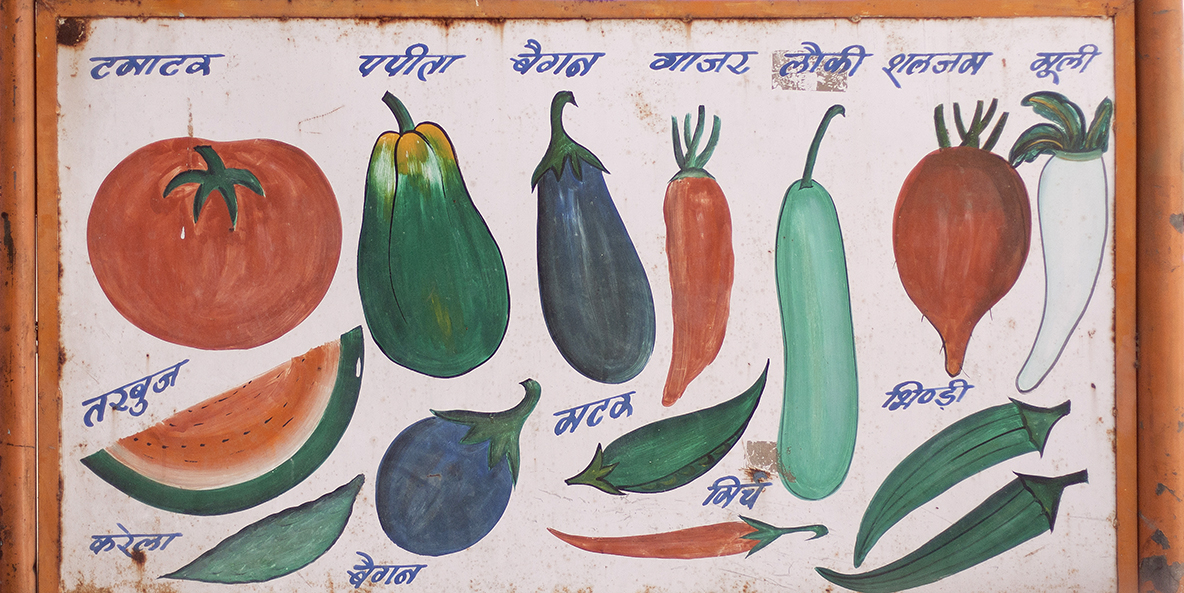 टमाटक पपीता बैगन गाजर लौकी शलजम मूली
तरबुज
मटक
भिण्ड़ी
मिर्च
करेला
बैगन